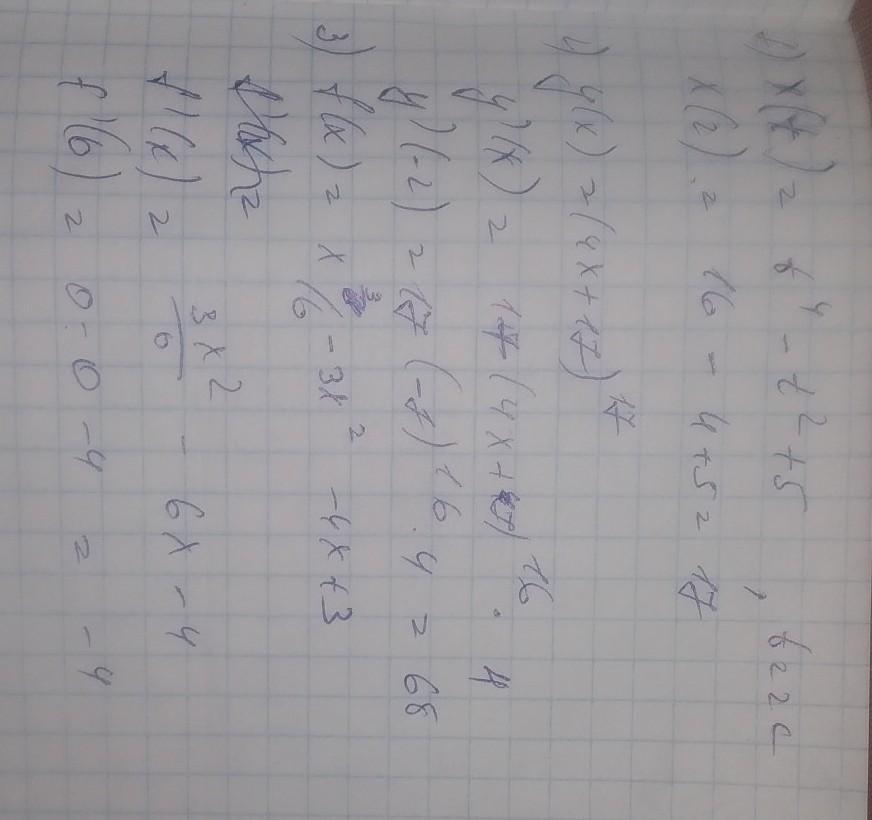 1) x(t) = t⁴ - t² + 5 , t = 2 c
x(2) = 16 - 4 + 5 = 17
4) y(x) = (4x + 17)¹⁷
y'(x) = 17 (4x + 17)¹⁶ · 4
y'(-2) = 17 (-1)¹⁶ · 4 = 68
3) f(x) = x³/6 - 3x² - 4x + 3
f'(x) = 3x²/6 - 6x - 4
f'(6) = 0 - 0 - 4 = -4